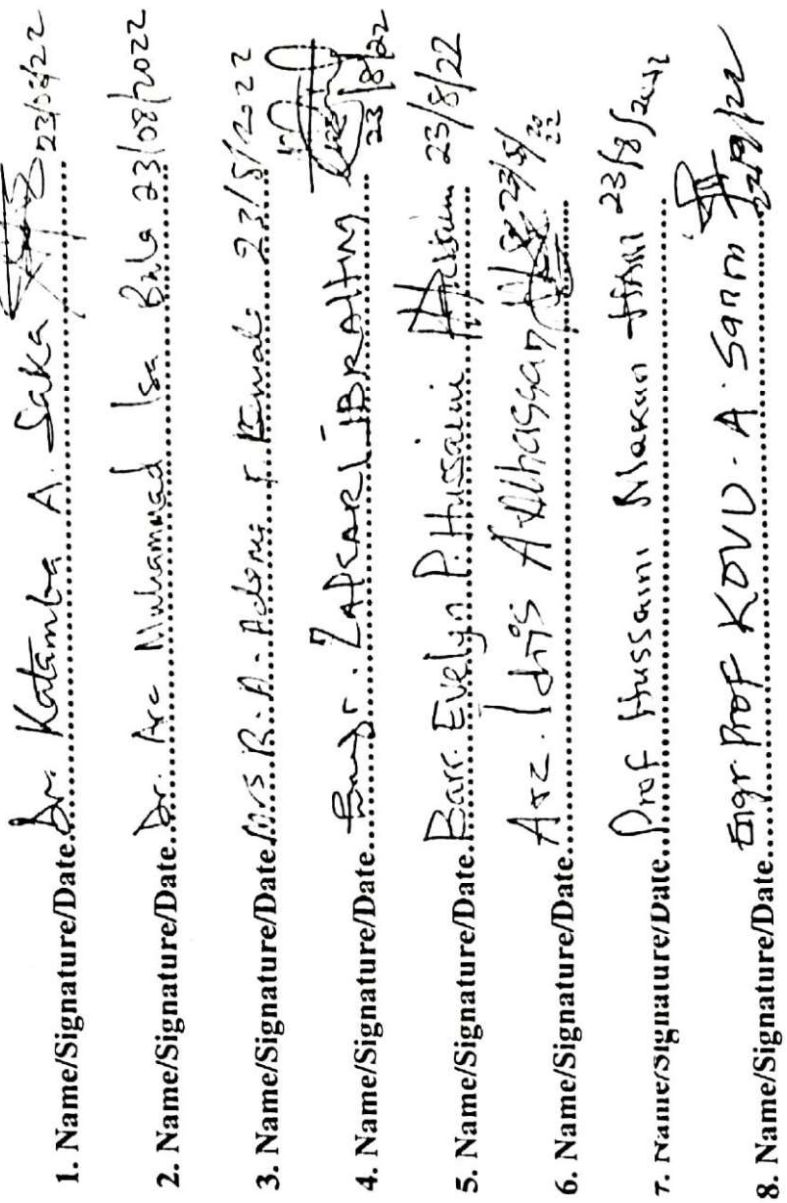 1. Name/Signature/Date Dr. Katamba A. Saka 23/08/22
2. Name/Signature/Date Dr. Arc Muhammad Isa Bala 23/08/2022
3. Name/Signature/Date Mrs R. A. Adoms 23/8/2022
4. Name/Signature/Date Engr. IBRAHIM 23/8/22
5. Name/Signature/Date Barr. Evelyn P. Hussaini 23/8/22
6. Name/Signature/Date Arc. Idris A Alhassan 23/8/2022
7. Name/Signature/Date Prof Hussaini Makun 23/8/2022
8. Name/Signature/Date Engr. Prof KOVO - A. Sanni